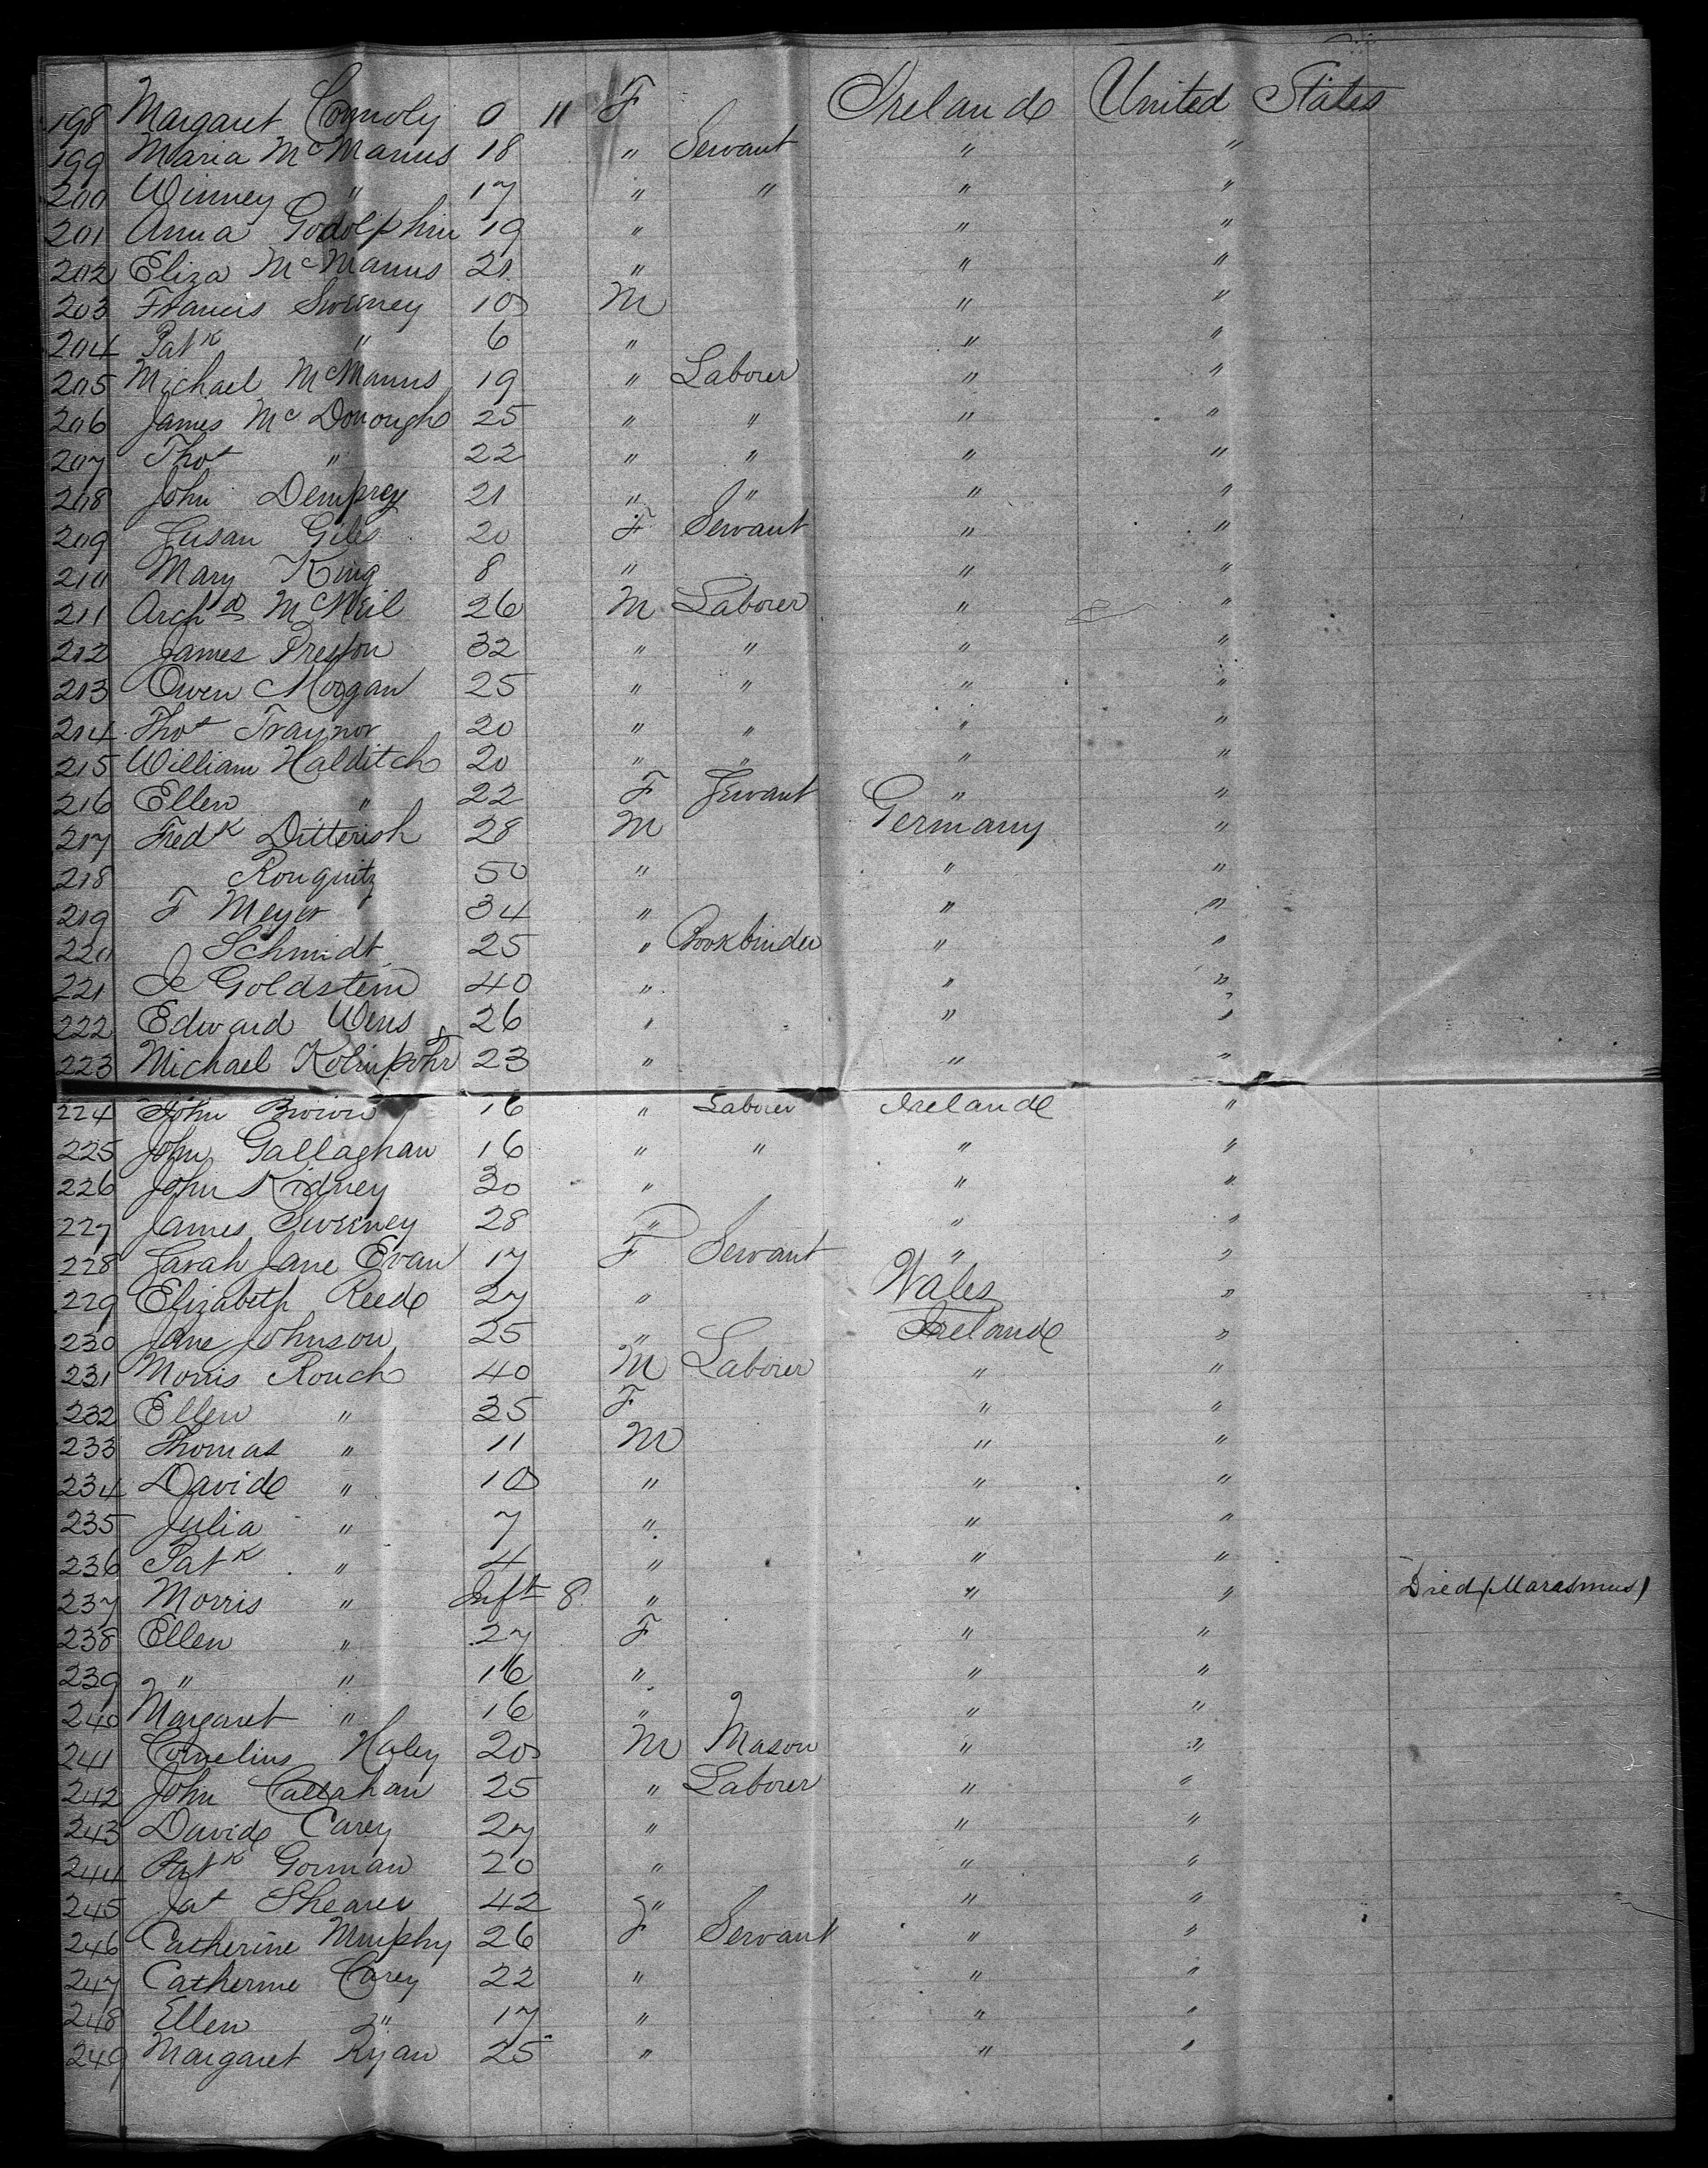 198 Margaret Connoly 0 11 F Ireland United States
199 Maria McManus 18 " Servant " "
200 Winney " 17 " " " "
201 Anna Godolphin 19 " " "
202 Eliza McManus 21 " " "
203 Francis Sweeney 10 M " "
204 Patk " 6 " " "
205 Michael McManus 19 " Laborer " "
206 James McDonough 25 " " " "
207 Thos " 22 " " " "
208 John Dempsey 21 " " " "
209 Susan Giles 20 F Servant " "
210 Mary King 8 " " "
211 Archd McNeil 26 M Laborer " "
212 James Preston 32 " " " "
213 Owen Morgan 25 " " " "
214 Thos Traynor 20 " " " "
215 William Halditch 20 " " " "
216 Ellen " 22 F Servant " "
217 Fredk Ditterish 28 M Germany "
218 Rouquitz 50 " " "
219 F Meyer 34 " " "
220 Schmidt 25 " Bookbinder " "
221 Goldstein 40 " " "
222 Edward Wens 26 " " "
223 Michael 23 " " "
224 John Brown 16 " Laborer Ireland "
225 John Gallaghan 16 " " " "
226 John Kidney 30 " " "
227 James Sweeney 28 " " "
228 Sarah Jane Evan 17 F Servant " "
229 Elizabeth Reed 27 " Wales "
230 Jane Johnson 25 " Ireland "
231 Morris Rouch 40 M Laborer " "
232 Ellen " 35 F " "
233 Thomas " 11 M " "
234 David " 10 " " "
235 Julia " 7 " " "
236 Patk " 4 " " "
237 Morris " Inft 8 " " " Died (Marasmus)
238 Ellen " 27 F " "
239 " " 16 " " "
240 Margaret " 16 " " "
241 Cornelius Haley 20 M Mason " "
242 John Callahan 25 " Laborer " "
243 David Carey 27 " " "
244 Patk Gorman 20 " " "
245 Jas Shearer 42 " " "
246 Catherine Murphy 26 F Servant " "
247 Catherine Carey 22 " " "
248 Ellen " 17 " " "
249 Margaret Ryan 25 " " "